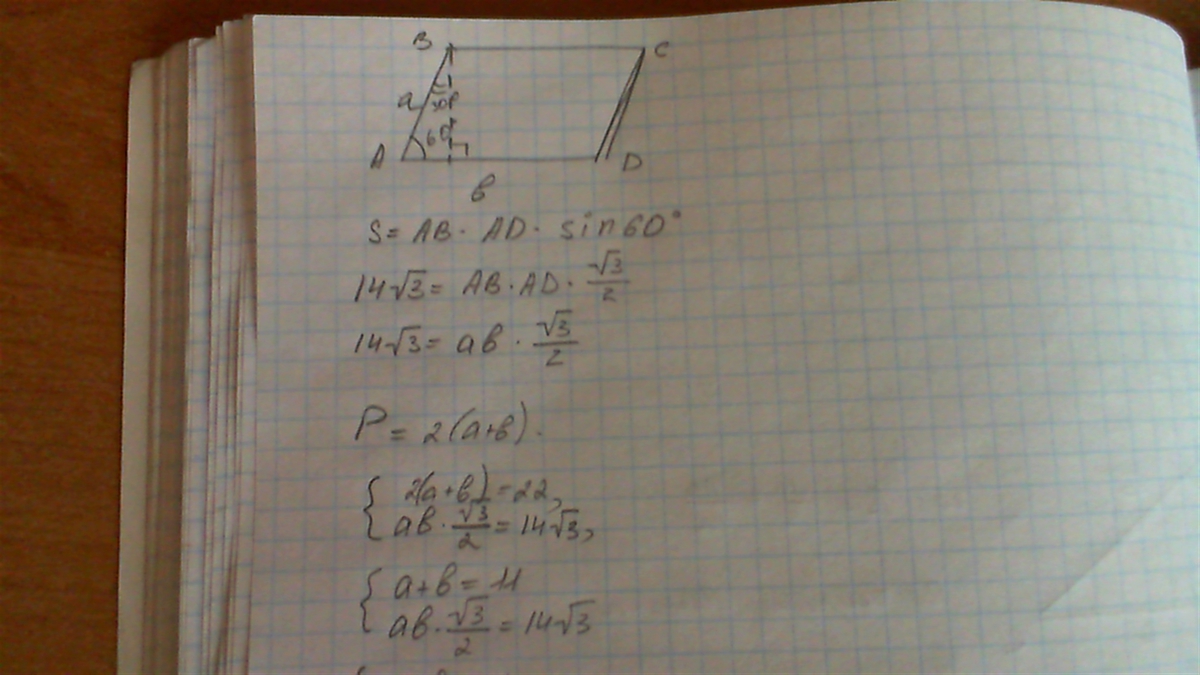 B C
a 30°
A 60° D
в
S = AB · AD · sin 60°
14√3 = AB · AD · √3/2
14√3 = aв · √3/2
P = 2(a+в).
{ 2(a+в) = 22,
aв · √3/2 = 14√3,
{ a+в = 11
aв · √3/2 = 14√3